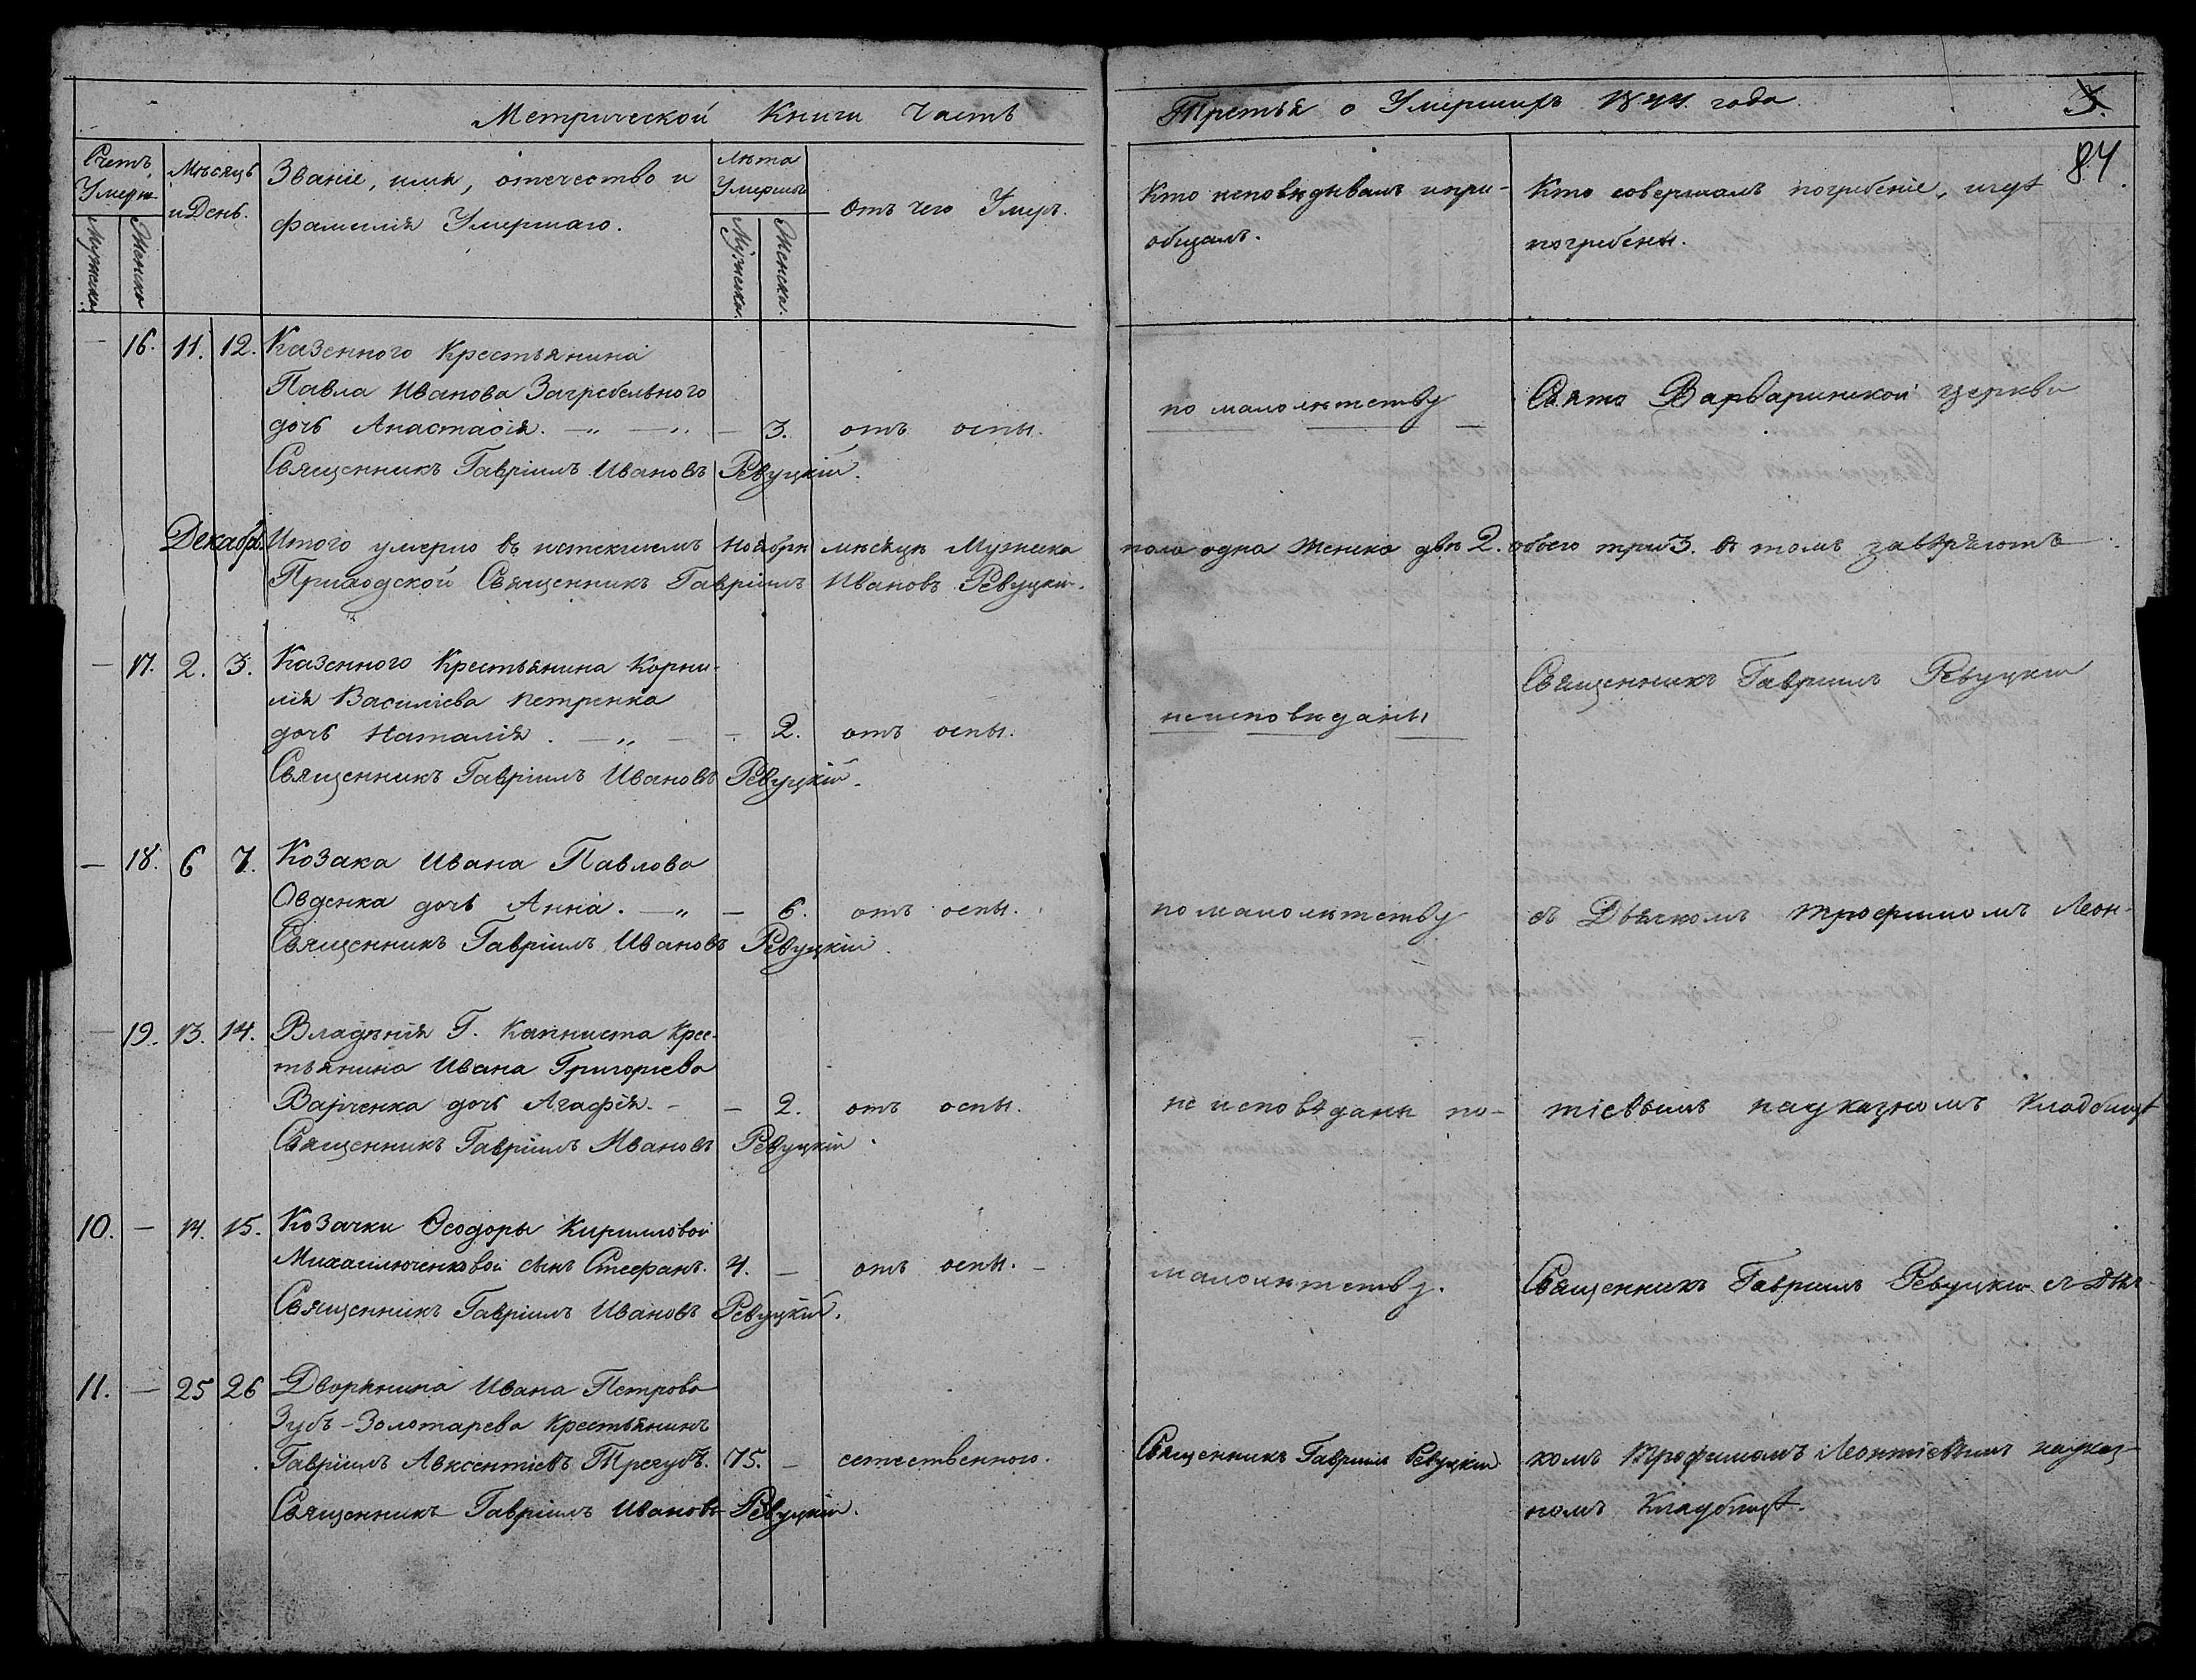 Метрической Книги Часть
Третья о Умершихъ 1844 года.
5.
84
Счетъ Умерш
Мужеска
Женска
Мѣсяцъ и День.
Званіе, имя, отечество и
фамилія Умершаго.
Лѣта Умершаго
Мужеска.
Женска.
Отъ чего Умеръ.
Кто исповѣдывалъ и прі-
общалъ.
Кто совершалъ погребеніе, и гдѣ
погребены.
— 16. 11. 12. Казенного Крестьянина
Павла Иванова Загребельного
дочь Анастасія. — „ — „ — 3. отъ оспы.
Священникъ Гавріилъ Ивановъ Ревуцкій.
по малолѣтству
Свято Варваринской церкви
Декабрь. Итого умерло въ истекшемъ Ноябрѣ мѣсяцѣ Мужеска
пола одна Женска двѣ 2. обоего три 3. въ томъ завѣряютъ
Приходской Священникъ Гавріилъ Ивановъ Ревуцкій.
— 17. 2. 3. Казенного Крестьянина Корни-
лія Василіева Петренка
дочь Наталія. — „ — — 2. отъ оспы.
Священникъ Гавріилъ Ивановъ Ревуцкій.
неисповѣданы
Священникъ Гавріилъ Ревуцкій
— 18. 6 7. Козака Ивана Павлова
Овденка дочь Анна. — „ — 6. отъ оспы.
Священникъ Гавріилъ Ивановъ Ревуцкій.
по малолѣтству
съ Дьячкомъ Трофимомъ Леон-
— 19. 13. 14. Владѣнія Г. Капниста Крес-
тьянина Ивана Григоріева
Варченка дочь Агафія. - — 2. отъ оспы.
Священникъ Гавріилъ Ивановъ Ревуцкій.
не исповѣданы по-
тіевымъ на указномъ Кладбищѣ
10. — 14. 15. Козачки Ѳеодоры Кирилловой
Михайлюченковой сынъ Стефанъ. 4. — отъ оспы. -
Священникъ Гавріилъ Ивановъ Ревуцкій.
малолѣтству.
Священникъ Гавріилъ Ревуцкій съ Дьяч-
11. — 25 26 Дворянина Ивана Петрова
Зубъ-Золотарева Крестьянинъ
Гавріилъ Авксентіевъ Трегубъ. 75. — естественного.
Священникъ Гавріилъ Ивановъ Ревуцкій.
Священникъ Гавріилъ Ревуцкій
комъ Трофимомъ Леонтіевымъ на указ-
номъ Кладбищѣ.